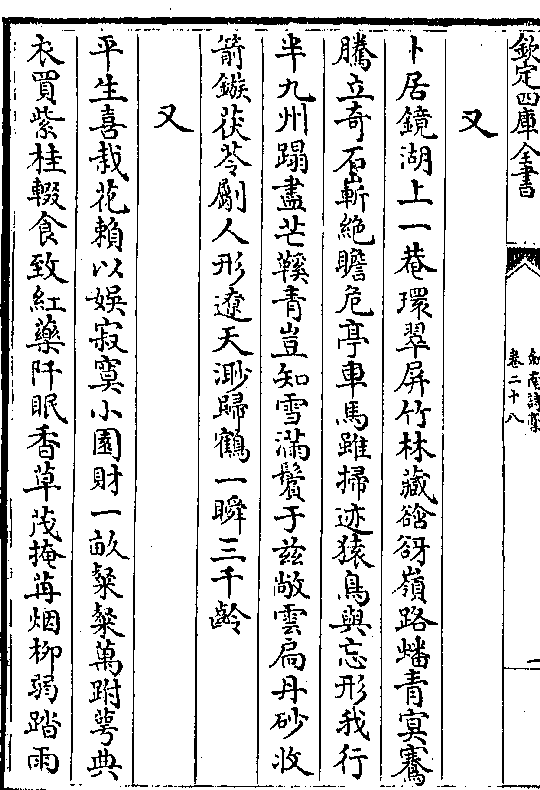 欽定四庫全書
劍南詩藁
卷二十八
又
卜居鏡湖上一菴環翠屏竹林藏谽谺嶺路蟠青冥騫
騰立奇石嶄絶瞻危亭車馬雖掃迹猿鳥與忘形我行
半九州蹋盡芒鞵青豈知雪滿鬢于兹敞雲扃丹砂收
箭鏃茯苓劚人形遼天渺歸鶴一瞬三千齡
又
平生喜栽花賴以娱寂寞小園財一畝粲粲萬跗萼典
衣買紫桂輟食致紅藥阡眠香草茂掩苒烟柳弱踏雨